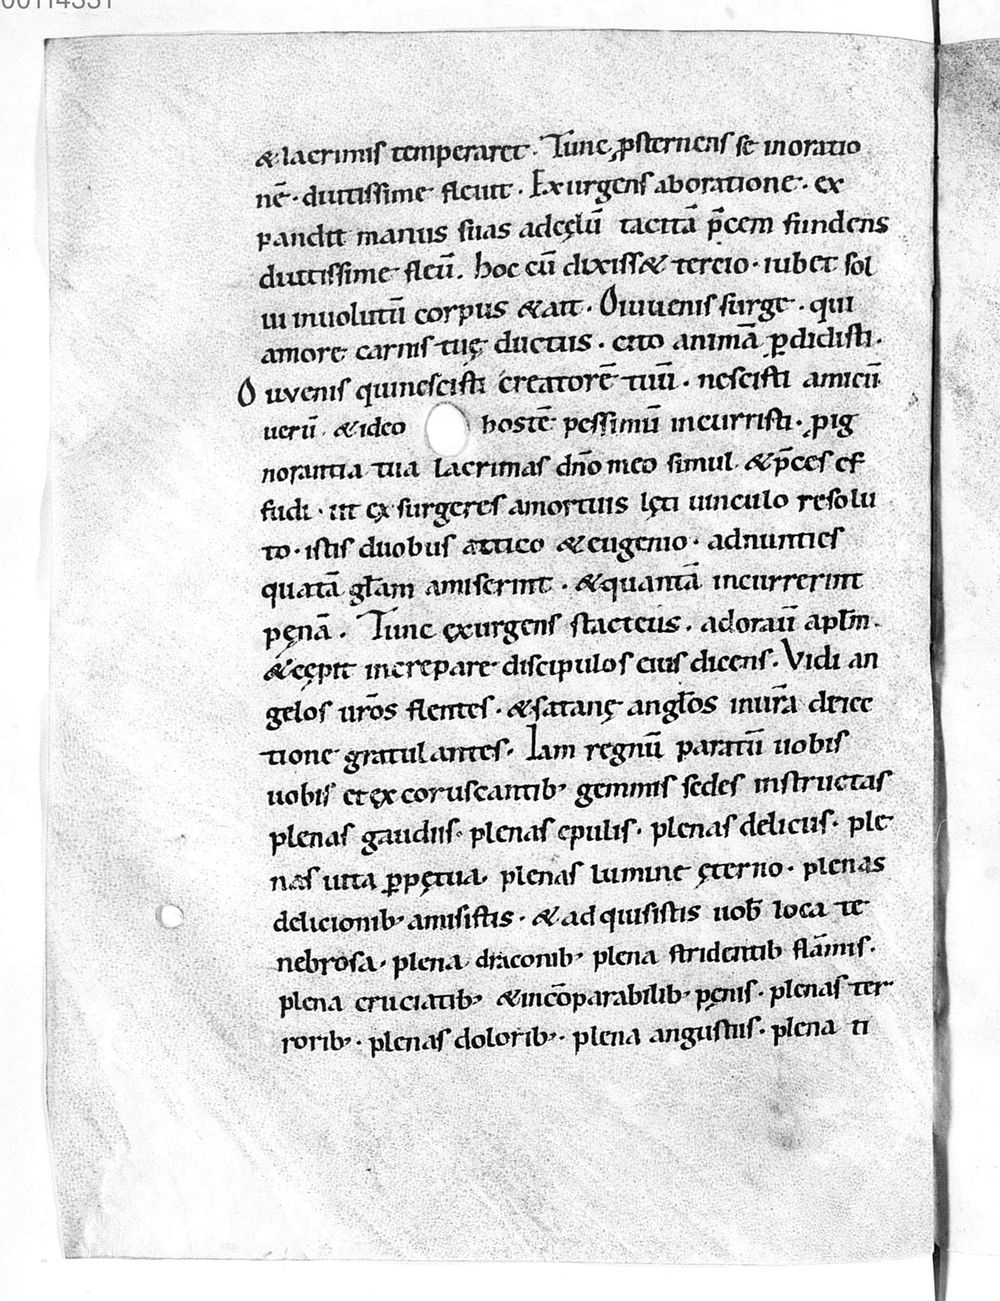 00114331
&lacrimis temperaret. Tunc, ꝓsternens se inoratio
nē. diutissime fleuit. Exurgens aboratione. ex
pandit manus suas adcęlū tacitā p̄cem fundens
diutissime fleū. hoc cū dixiss& tercio. iubet sol
ui inuolutū corpus &ait. O iuuenis surge. qui
amore carnis tuę ductus. cito animā ꝑdidisti.
O iuvenis quinescisti creatorē tuū. nescisti amicū
uerū. &ideo hostē pessimū incurristi. ꝓ ig
norantia tua lacrimas dn̄o meo simul. &p̄ces ef
fudi. ut ęx surgeres amortuis lęti uinculo resolu
to. istis duobus attico &eugenio. adnunties
quatā gl̄am amiserint. &quantā incurrerint
pęnā. Tunc ęxurgens stacteus. adoraū apl̄m.
&cępit increpare discipulos eius dicens. Vidi an
gelos ur̄os flentes. &satanę angl̄os inur̄a deiec
tione gratulantes. Iam regnū paratū uobis
uobis et ęx coruscantib' gemmis sedes instructas
plenas gaudiis. plenas epulis. plenas deliciis. ple
nas uita ꝑpętua. plenas lumine ęterno. plenas
delicionib' amisistis. &ad quisistis uob̄ loca te
nebrosa. plena draconib' plena stridentib flāmis.
plena cruciatib' &incōparabilib' pęnis. plenas ter
rorib'. plenas dolorib'. plena angustiis. plena ti